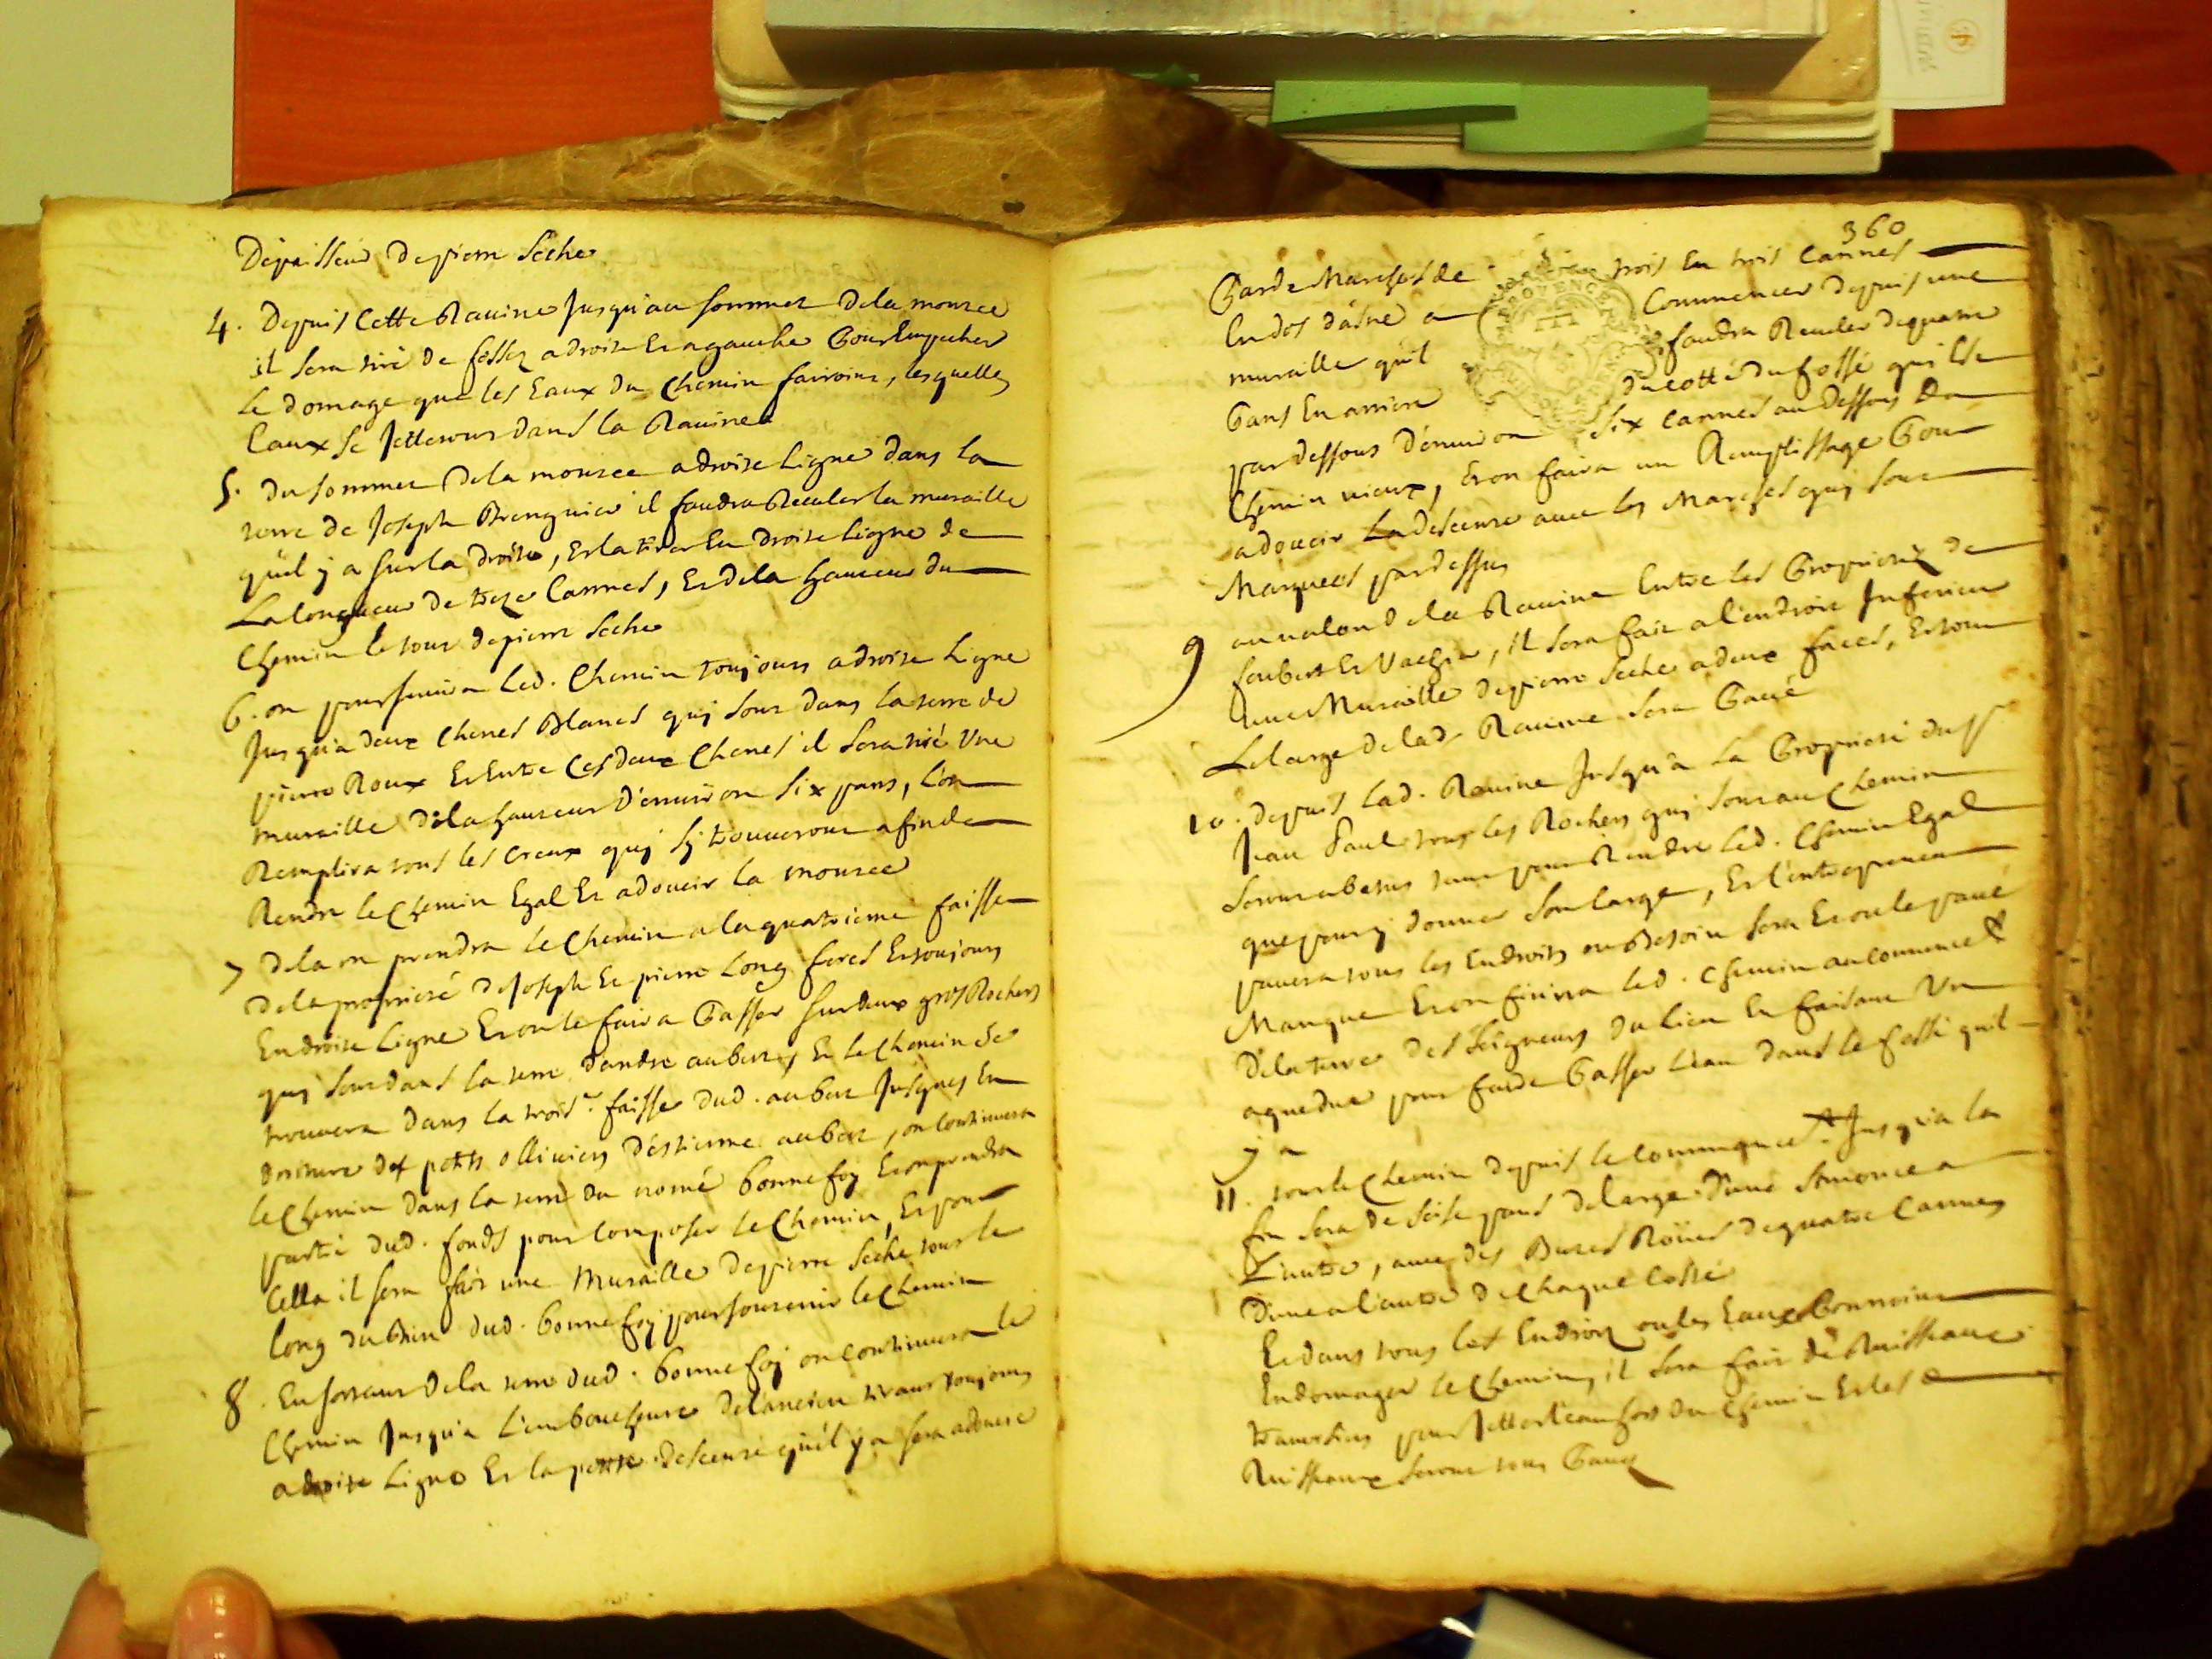 Depaisseur de pierre seche
4. Depuis Cette Ravine Jusqu'au sommet de la montee
il sera tiré de fossez a droite Et a gauche Pour Empecher
le domage que les Eaux du Chemin fairoint, lesquelles
Eaux se Jetteront dans la Ravine
5. du sommet de la montee a droite Ligne dans la
terre de Joseph Brenguier il faudra Reculer la muraille
qu'il y a sur la droite, Et la tirer En droite Ligne de
La longueur de treze Cannes, Et de la hauteur du
Chemin le tout de pierre seche
6. on poursuivra led. Chemin toujours a droite Ligne
Jusqu'a deux Chenes Blancs quy sont dans la terre de
pierre Roux Et Entre Ces deux Chenes il sera tiré Une
muraille de la hauteur d'environ six pans, l'on
Remplira tous les Creux quy s'y trouveront afin de
Rendre le Chemin Egal Et adoucir la montee
7 de la on prendra le Chemin a la quatrieme faisse
de la proprieté de Joseph Et pierre Long freres Et toujours
En droite Ligne Et on le faira Passer sur deux gros Rochers
quy sont dans la terre d'andré aubert, Et le Chemin se
trouvera dans la trois.e faisse dud. aubert Jusques En
droiture des petits olliviers d'estienne aubert, on Continuera
le Chemin dans la terre du nomé bonnefoy Et on prendra
partie dud. fonds pour Composer le Chemin, Et pour
Cella il sera fait une Muraille de pierre seche tout le
long du bien dud. bonnefoy pour soutenir le Chemin
8. En sortant de la terre dud. bonnefoy on Continuera le
Chemin Jusqu'a L'embouchure de l'ancien tirant toujours
a droite Ligne Et la petite descente qu'il y a sera adoucie
360
Par de Marches de trois En trois Cannes
En dos d'asne a Commencer depuis une
muraille qu'il faudra Reculer de quatre
Pans En arriere du cotté du fossé qui Est
par dessous d'environ six Cannes au dessous du
Chemin vieux, Et on faira un Remplissage Pour
adoucir La descente avec les Marches quy sont
Marquees par dessus
9 au valon de la Ravine Entre les Proprietez de
Joubert Et Vachier, il sera fait a l'endroit Inferieur
Une Muraille de pierre seche a deux faces, Et tout
Le large de lad. Ravine sera Pavé
10. depuis lad. Ravine Jusqu'a la Proprieté du Sr
Jean Paul tous les Rochers quy sont au Chemin
seront abatus tant pour Rendre led. Chemin Egal
que pour y donner son large, Et l'entrepreneur
pavera tous les Endroits ou Besoin sera Et ou le pavé
Manque Et on finira led. Chemin au Commencet
de la terre des Seigneurs du lieu En faisant Un
aqueduc pour faire Passer l'eau dans le fossé qu'il
y a
11. tout le Chemin depuis le Commencet. Jusqu'a la
fin sera de seise pans de large d'une a
L'autre, avec des Butes Roües de quatre Cannes
d'une a l'autre de Chaque Costé
Et dans tous les Endroits ou les Eaux Pourroint
Endomager le Chemin, il sera fait de Ruisseaux
traversiers pour Jetter l'eau hors du Chemin Et les
Ruisseaux seront tous Pavez